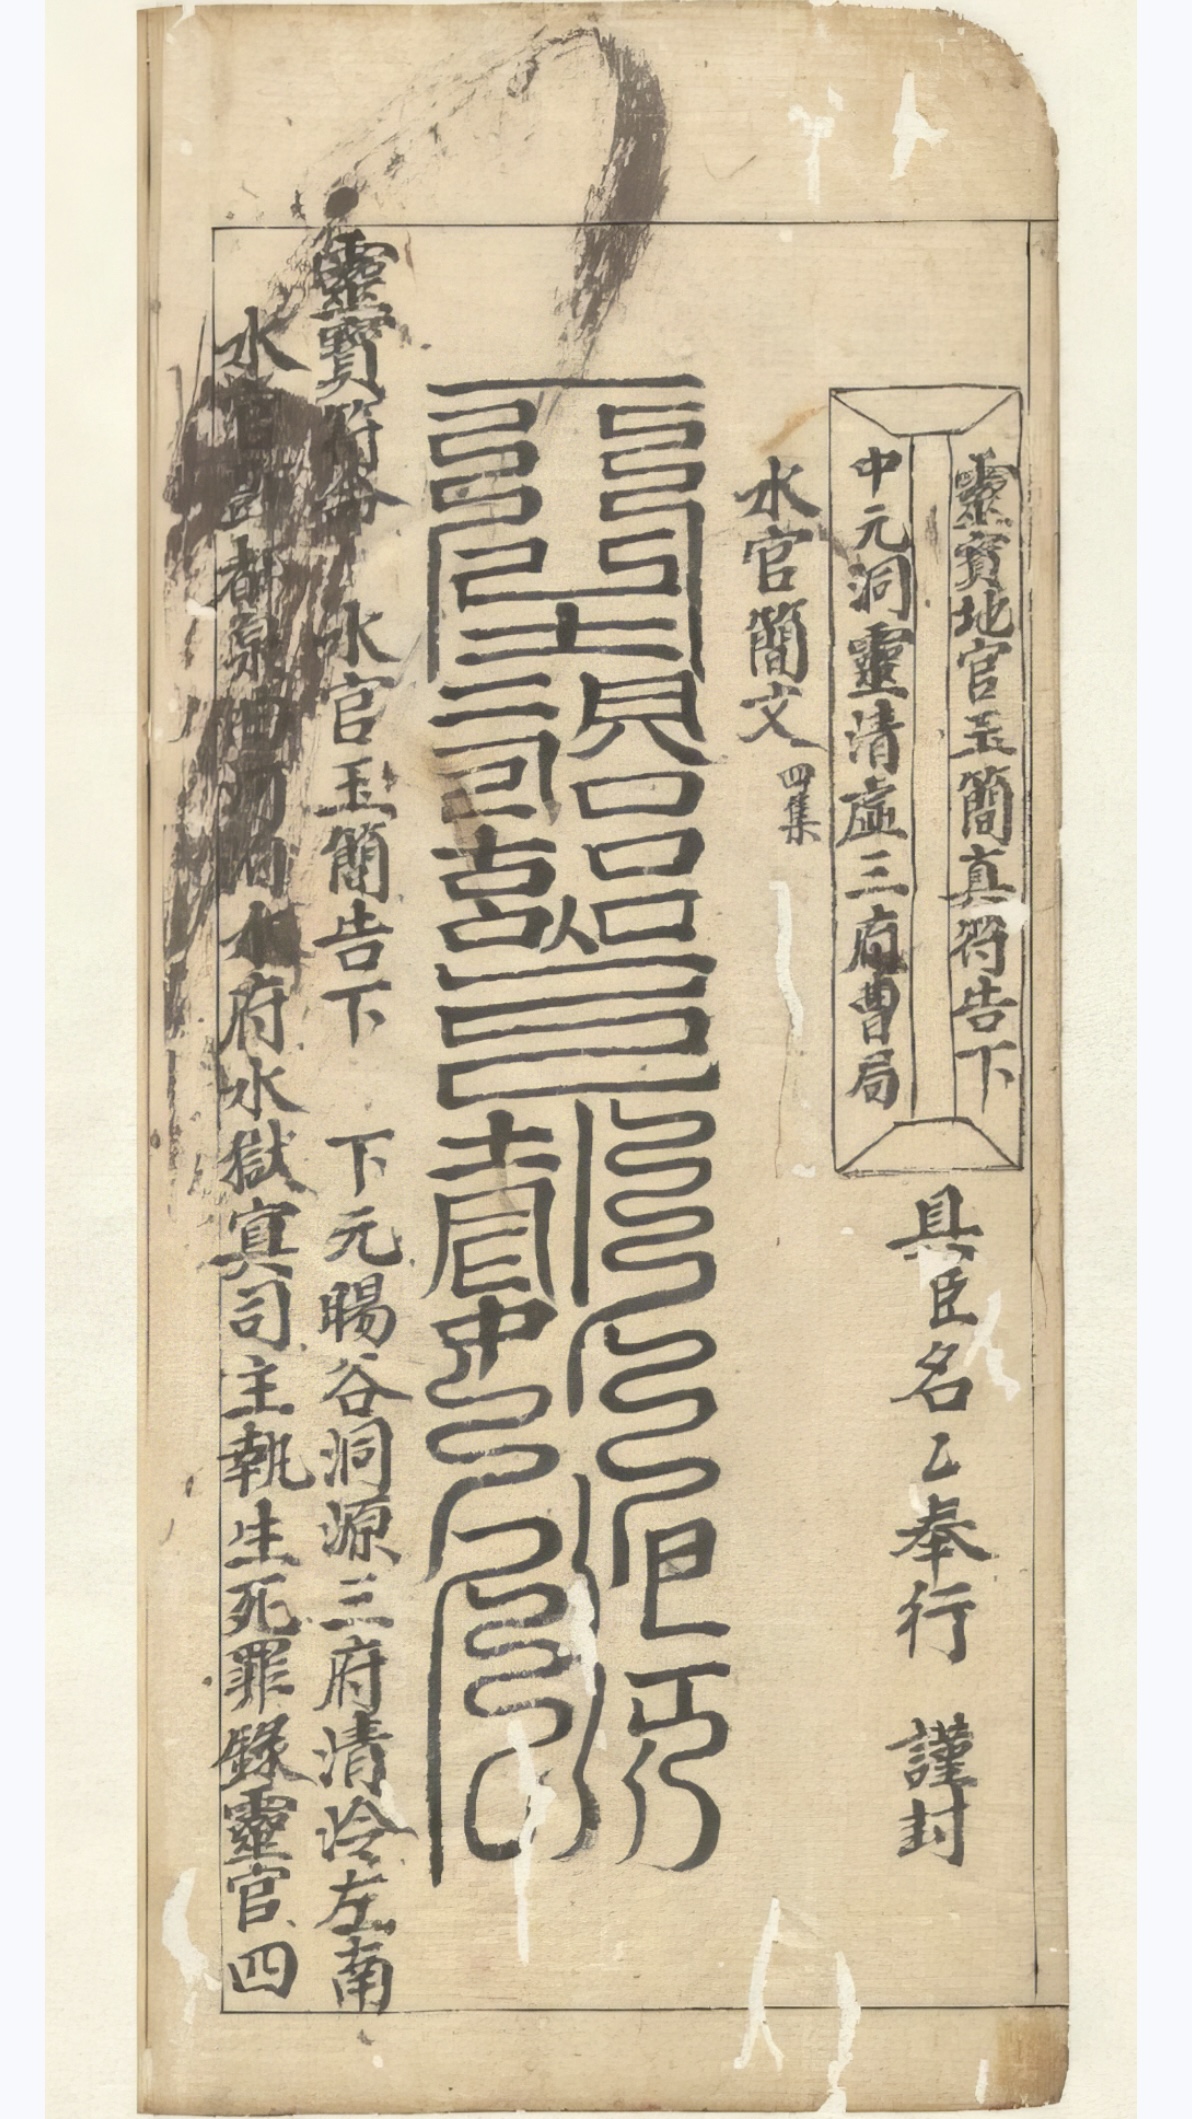 靈寶地官玉簡真符告下
中元洞靈清虛三府曹局
具臣名乙奉行 謹封
水官簡文四集
靈寶符命 水官玉簡告下 下元暘谷洞源三府清泠左南
水官 都泉 河 水府水獄寘司主執生死罪錄靈官四